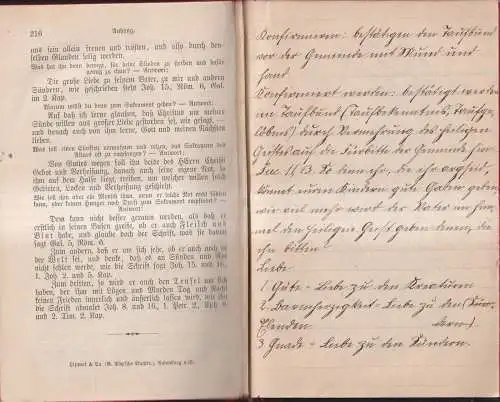 216 Anhang.
uns sein allein freuen und trösten, und also durch den-
selben Glauben selig werden.
Was hat ihn denn bewegt, für deine Sünden zu sterben und dafür
genug zu thun? — Antwort:
Die große Liebe zu seinem Vater, zu mir und andern
Sündern, wie geschrieben steht Joh. 15, Röm. 6, Gal.
im 2. Kap.
Warum willst du denn zum Sakrament gehen? — Antwort:
Auf daß ich lerne glauben, daß Christus um meiner
Sünde willen aus großer Liebe gestorben ist, wie gesagt,
und danach auch von ihm lerne, Gott und meinen Nächsten
lieben.
Was soll einen Christen vermahnen und reizen, das Sakrament des
Altars oft zu empfangen? — Antwort:
Von Gottes wegen soll ihn beide des Herrn Christi
Gebot und Verheißung, danach auch seine eigene Not, so
ihm auf dem Halse liegt, treiben, um welcher willen solch
Gebieten, Locken und Verheißung geschieht.
Wie soll ihm aber ein Mensch thun, wenn er solche Not nicht fühlen
kann, oder keinen Hunger und Durst zum Sakrament empfindet? —
Antwort:
Dem kann nicht besser geraten werden, als daß er
erstlich in seinen Busen greife, ob er auch Fleisch und
Blut habe, und glaube doch der Schrift, was sie davon
sagt Gal. 5, Röm. 6.
Zum andern, daß er um sich sehe, ob er auch noch in
der Welt sei, und denke, daß es an Sünden und Not
nicht fehlen werde, wie die Schrift sagt Joh. 15. und 16.,
1. Joh. 2. und 5. Kap.
Zum dritten, so wird er auch den Teufel um sich
haben, der ihm mit Lügen und Morden Tag und Nacht
keinen Frieden innerlich und äußerlich lassen wird, wie ihn
die Schrift abmalet Joh. 8. und 16., 1. Petr. 2, Eph. 6
und 2. Tim. 2. Kap.
Naumburg a/S.
Konfirmieren: bestätigen den Taufbund
vor der Gemeinde mit Mund und
Hand
Konfirmiert werden: bestätigt werden
im Taufbund (Taufbekenntnis, Taufge-
löbnis) durch Vermehrung des heiligen
Geistes auf die Fürbitte der Gemeinde hin
Luc 11,13. So denn ihr, die ihr arg seid,
könnt euren Kindern gute Gaben geben,
wie viel mehr wird der Vater im Him-
mel den Heiligen Geist geben denen, die
ihn bitten!
Liebe
1 Güte - Liebe zu den Kreaturen
2. Barmherzigkeit - Liebe zu den
3. Gnade - Liebe zu den Sündern.